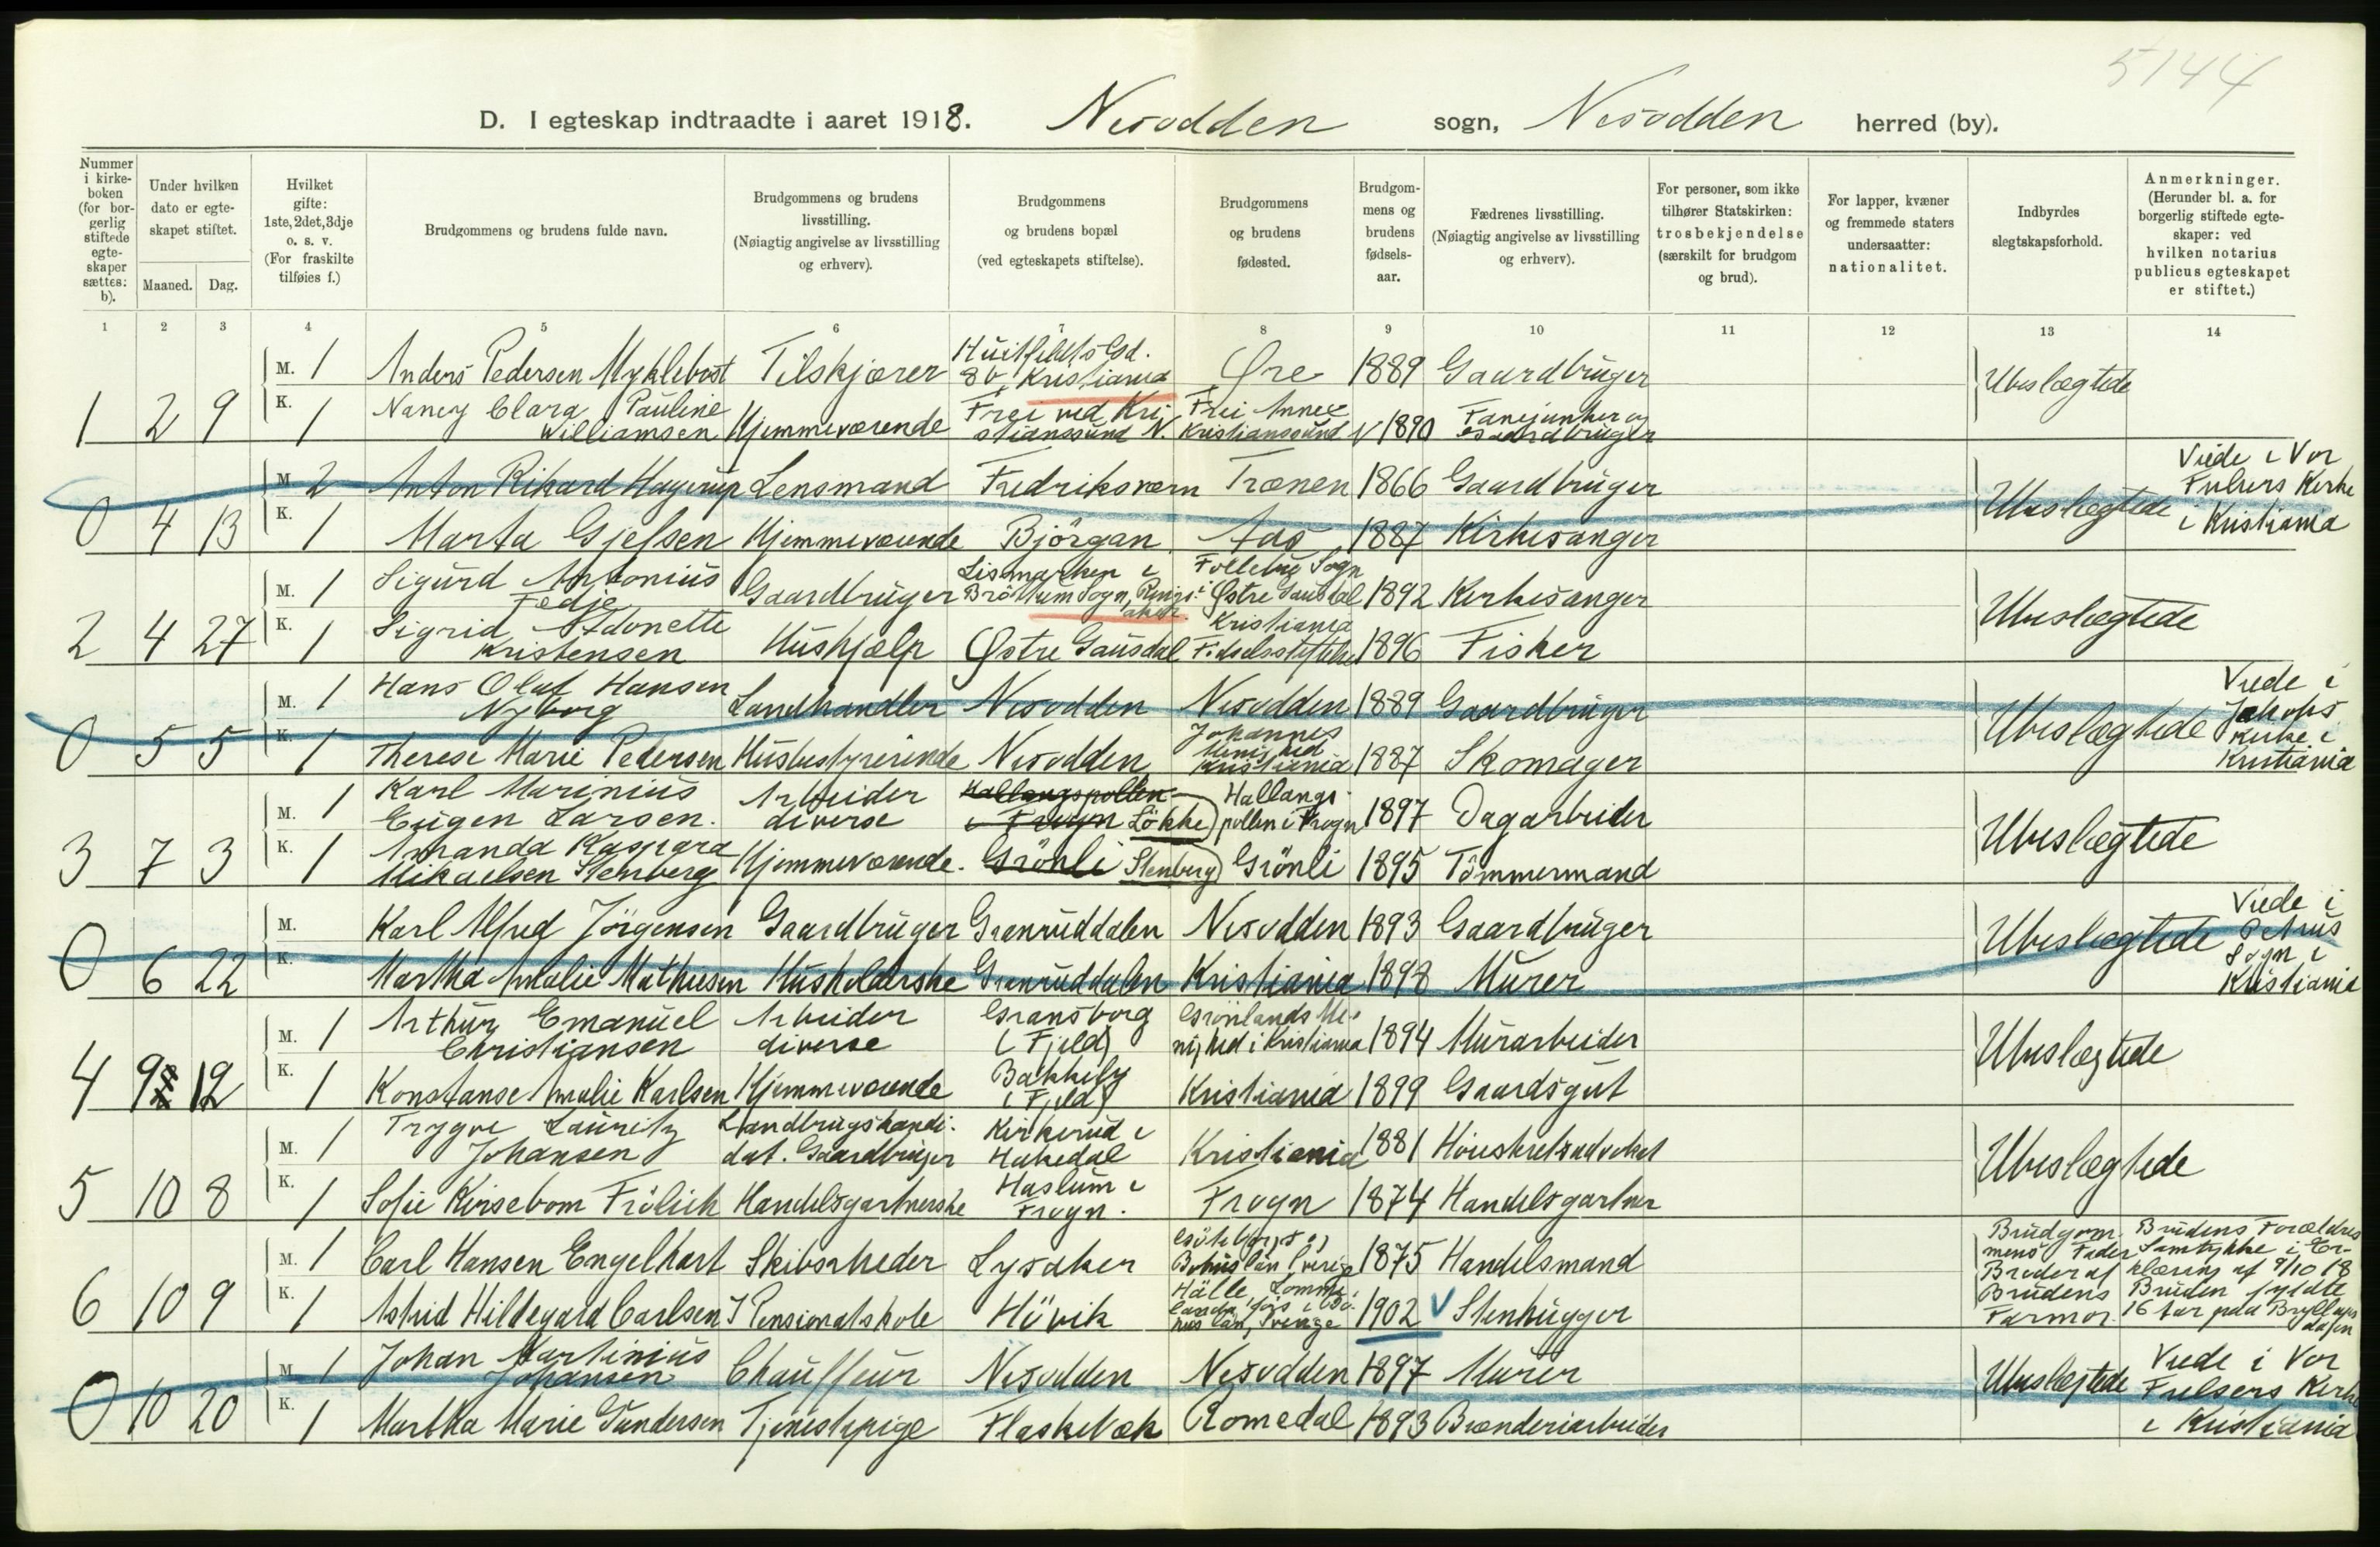 5144
D. I egteskap indtraadte i aaret 1918. Nesodden sogn, Nesodden herred (by).
Nummer i kirke-boken (for bor-gerlig stiftede egte-skaper sættes: b).
Under hvilken dato er egte-skapet stiftet.
Maaned. Dag.
Hvilket gifte: 1ste, 2det, 3dje o. s. v. (For fraskilte tilføies f.)
Brudgommens og brudens fulde navn.
Brudgommens og brudens livsstilling. (Nøiagtig angivelse av livsstilling og erhverv).
Brudgommens og brudens bopæl (ved egteskapets stiftelse).
Brudgommens og brudens fødested.
Brudgom-mens og brudens fødsels-aar.
Fædrenes livsstilling. (Nøiagtig angivelse av livsstilling og erhverv).
For personer, som ikke tilhører Statskirken: trosbekjendelse (særskilt for brudgom og brud).
For lapper, kvæner og fremmede staters undersaatter: nationalitet.
Indbyrdes slegtskapsforhold.
Anmerkninger. (Herunder bl. a. for borgerlig stiftede egte-skaper: ved hvilken notarius publicus egteskapet er stiftet.)
1 2 3 4 5 6 7 8 9 10 11 12 13 14
M. 1 Anders Pedersen Myklebost Tilskjærer Huitfeldts Gd. 8b, Kristiania Øre 1889 Gaardbruger Ubeslægtede
1 2 9 K. 1 Nancy Clara Pauline Williamsen Hjemmeværende Frei ved Kri-stianssund N. Frei Annex Kristianssund N 1890 Fanejunker og Gaardbruger
M. 2 Anton Rikard Hagerup Lensmand Fredriksværn Trænen 1866 Gaardbruger Ubeslægtede Viede i Vor Frelsers Kirke i Kristiania
0 4 13 K. 1 Marta Gjelsen Hjemmeværende Björgan Aas 1887 Kirkesanger
M. 1 Sigurd Antonius Fedje Gaardbruger Lismarken i Bröttum Sogn, Rings-aker. Follebu Sogn i Østre Gausdal 1892 Kirkesanger Ubeslægtede
2 4 27 K. 1 Sigrid Adonette Kristensen Hushjælp Østre Gausdal Kristiania Fødselsstiftelse 1896 Fisker
M. 1 Hans Olaf Hansen Nyborg Landhandler Nesodden Nesodden 1889 Gaardbruger Ubeslægtede Viede i Jakobs Kirke i Kristiania
0 5 5 K. 1 Therese Marie Pedersen Husbestyrerinde Nesodden Johannes Menighed Kristiania 1887 Skomager
M. 1 Karl Marinius Eugen Larsen. Arbeider diverse Hallangspollen i Frogn Lökke Hallangs-pollen i Frogn 1897 Dagarbeider Ubeslægtede
3 7 3 K. 1 Amanda Kaspara Mikaelsen Stenberg Hjemmeværende. Grönli Stenberg Grönli 1895 Tömmermand
M. Karl Alfred Jörgensen Gaardbruger Granruddalen Nesodden 1893 Gaardbruger Ubeslægtede Viede i Petrus Sogn i Kristiania
0 6 22 K. Martha Amalie Mathiesen Husholderske Granruddalen Kristiania 1898 Murer
M. 1 Arthur Emanuel Christiansen Arbeider diverse Gransborg (Fjeld) Grönlands Me-nighed i Kristiania 1894 Murarbeider Ubeslægtede
4 9 12 K. 1 Konstanse Amalie Karlsen Hjemmeværende Bakkely (Fjeld) Kristiania 1899 Gaardsgut
M. 1 Trygve Lauritz Johansen Landbrugskandi-dat. Gaardbruger Kirkerud i Hakedal Kristiania 1881 Höiesteretsadvokat Ubeslægtede
5 10 8 K. 1 Sofie Kirsebom Frölich Handelsgartnerske Haslum i Frogn. Frogn 1874 Handelsgartner
M. 1 Carl Hansen Engelhart Skibsreder Lysaker Bohuslän Sverige 1875 Handelsmand Brudgom-mens Fader Broder af Brudens Farmor. Brudens Forældres Samtykke i Er-klæring af 9/10 18 Bruden fyldte 16 Aar paa Bryllups-dagen
6 10 9 K. 1 Astrid Hildegard Carlsen I Pensionatskole Hövik Hälle, Lomme-lands i Bo-hus län, Sverige 1902 V Stenhugger
M. 1 Johan Martinius Johansen Chauffeur Nesodden Nesodden 1897 Murer Ubeslægtede Viede i Vor Frelsers Kirke i Kristiania
0 10 20 K. 1 Martha Marie Gundersen Tjenestepige Flaskebæk Romedal 1893 Brænderiarbeider